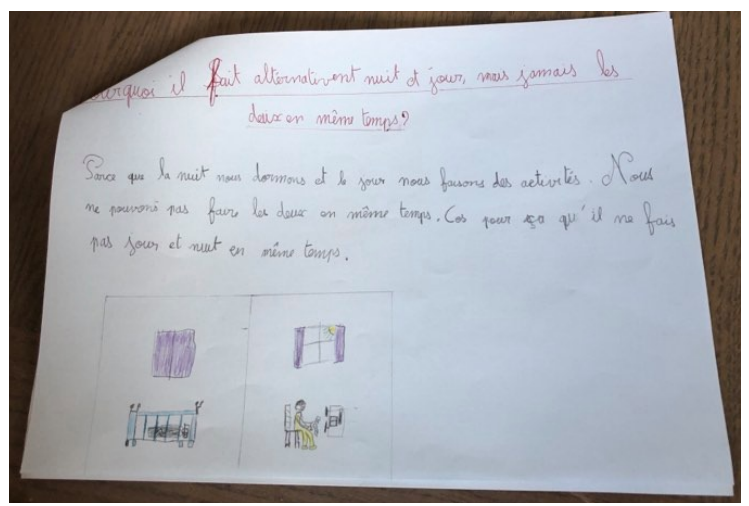 ourquoi il fait alternativent nuit et jour, mais jamais les
deux en même temps?
Parce que la nuit nous dormons et le jour nous faisons des activités. Nous
ne pouvons pas faire les deux en même temps. Cos pour ça qu'il ne fais
pas jour et nuit en même temps.